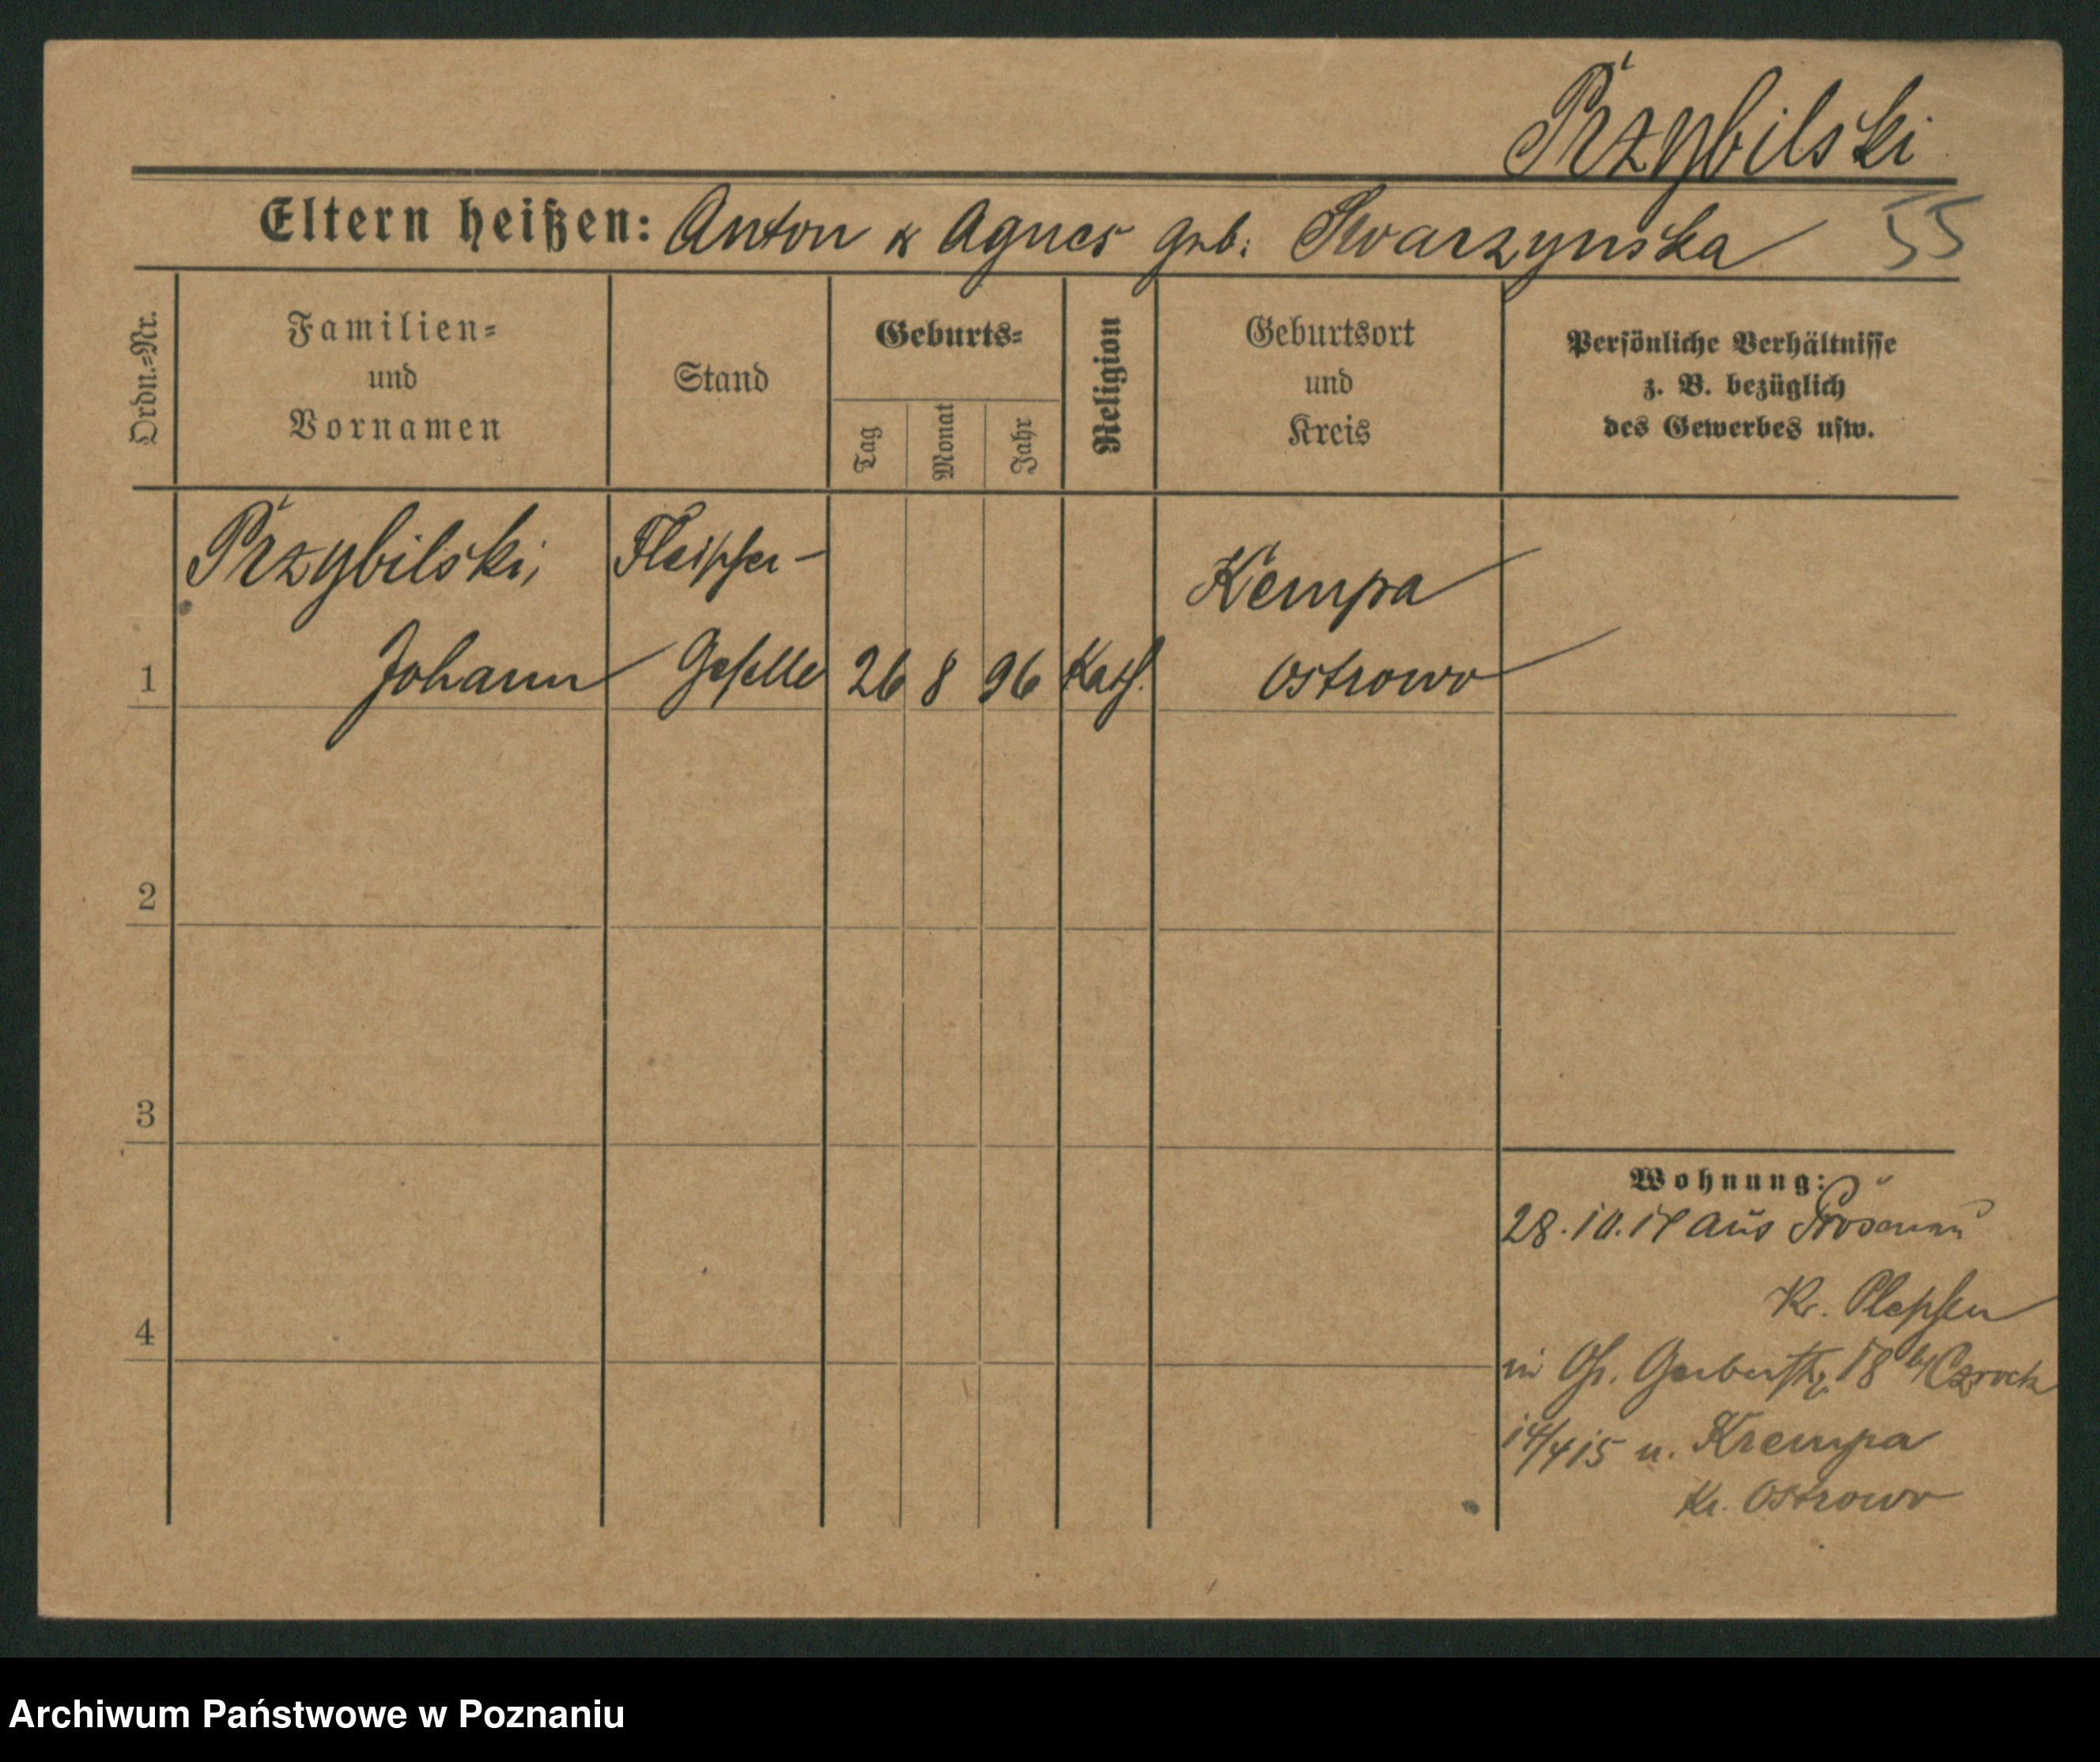 Przybilski
Eltern heißen: Anton & Agnes geb. Swarzynska 55
Ordn.=Nr. Familien= und Vornamen Stand Geburts= Tag Monat Jahr Religion Geburtsort und Kreis Persönliche Verhältnisse z. B. bezüglich des Gewerbes usw.
Przybilski, Fleischer- Kempa
1 Johann Geselle 26 8 96 Kath. Ostrowo
2
3
Wohnung:
28.10.14 aus
Kr. Pleschen
4
in Gr. Gerberstr. 18 b/
14/4 15 n. Krempa
Kr. Ostrowo
Archiwum Państwowe w Poznaniu